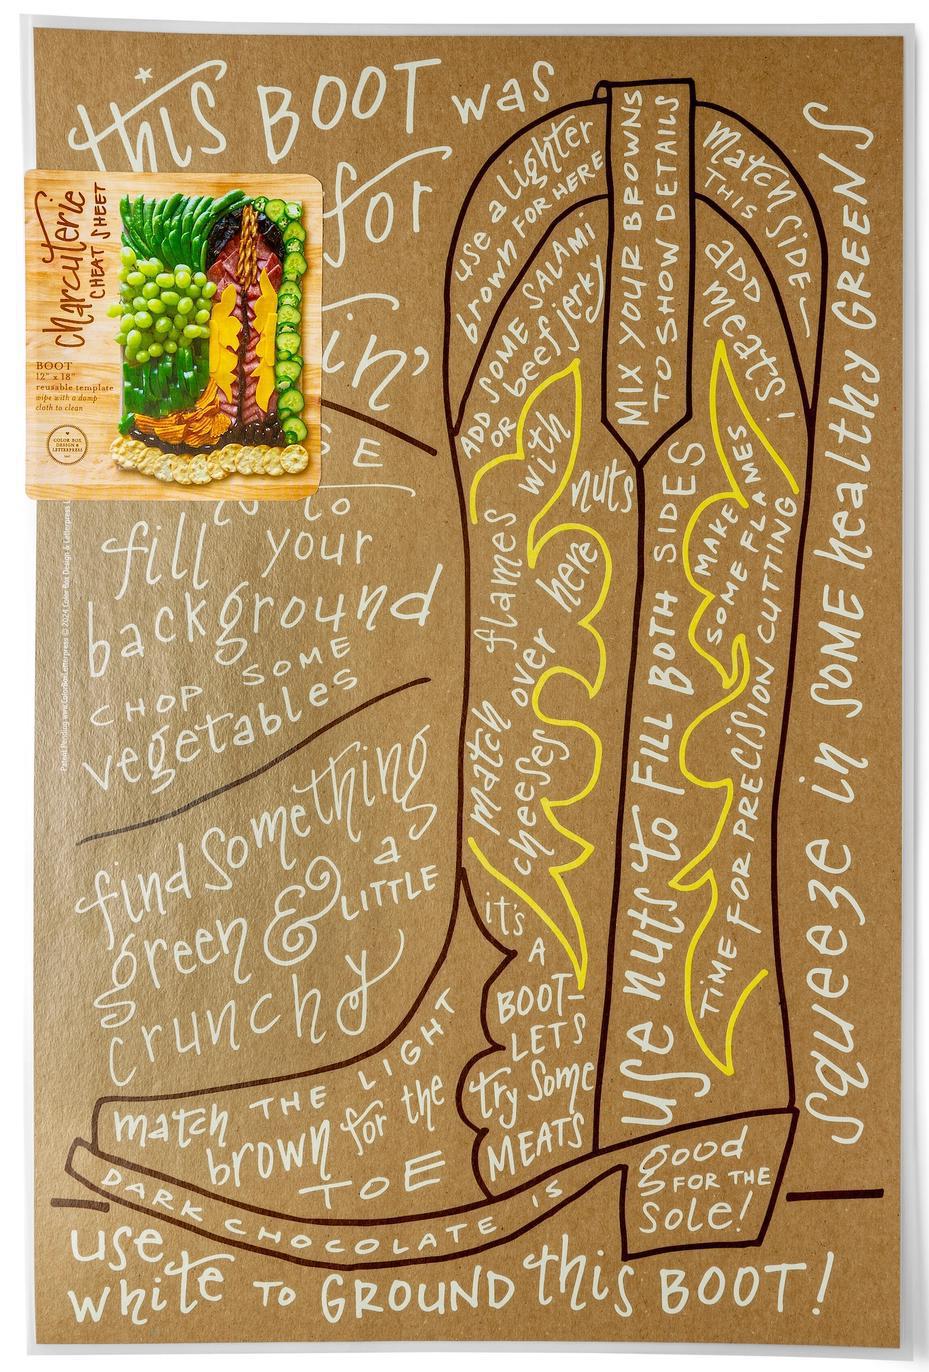 this BOOT was
for
in'
E
to
fill your
background
CHOP SOME
vegetables
find something
green & a
LITTLE
crunchy
charcuterie
CHEAT SHEET
BOOT
12" x 18"
reusable template
wipe with a damp
cloth to clean
COLOR BOX
DESIGN &
LETTERPRESS
Patent Pending
© 2024 Color Box Design & Letterpress
use a lighter
brown FOR HERE
MIX YOUR BROWNS
TO SHOW DETAILS
match SIDE
THIS
ADD SOME SALAMI
OR beef jerky
ADD
meats!
with
nuts
match flames
cheeses over here
use nuts to FILL BOTH SIDES
MAKE
SOME FLAMES
TIME FOR PRECISION CUTTING
it's
A
BOOT-
LETS
try some
MEATS
match THE LIGHT
brown for the
TOE
DARK CHOCOLATE IS
good
FOR THE
sole!
squeeze in SOME healthy GREENS
use
white TO GROUND this BOOT!